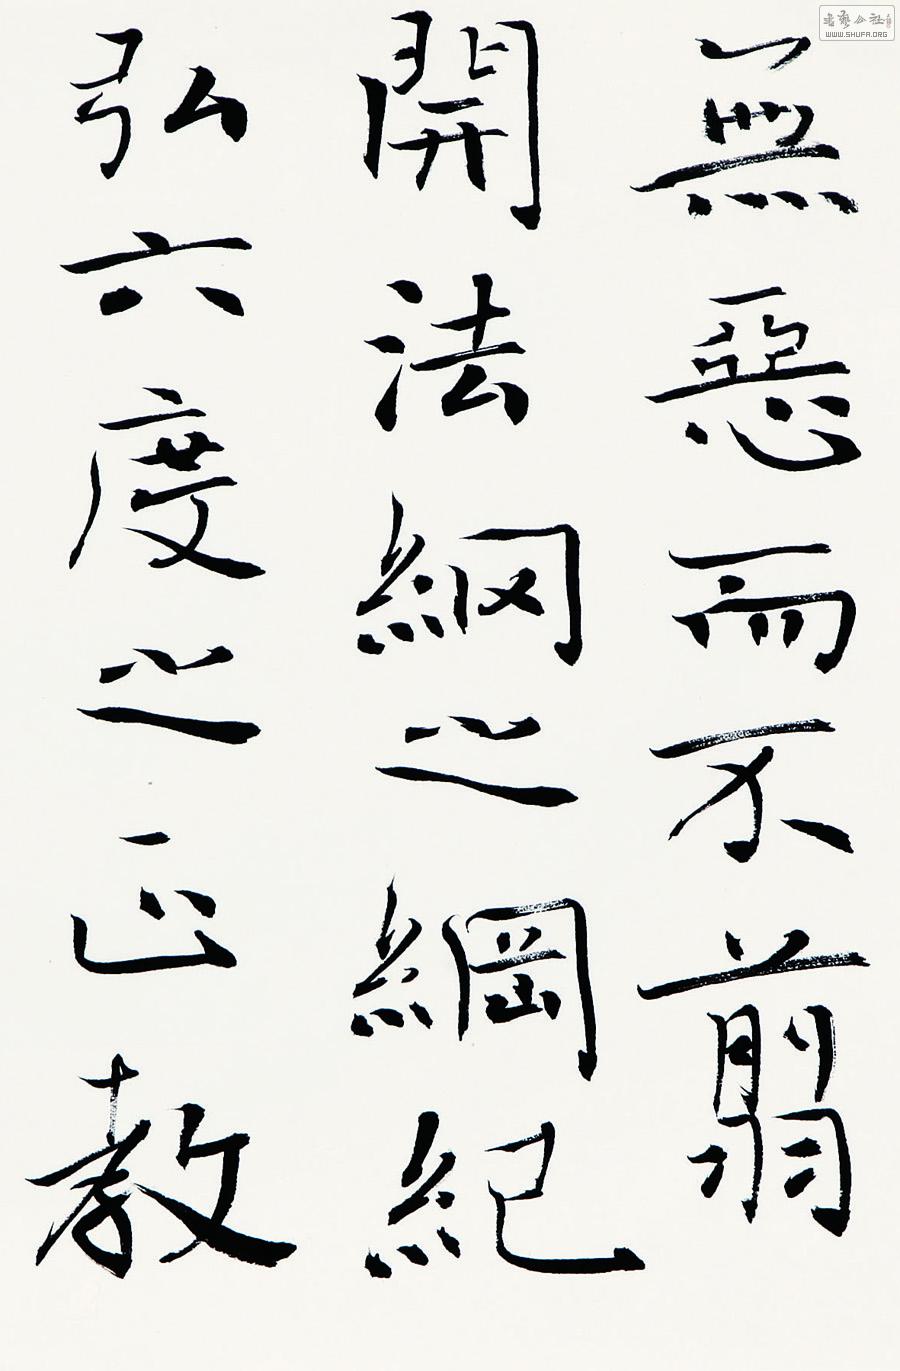 無惡而不翦
開法網之綱紀
弘六度之正教
书艺公社
WWW.SHUFA.ORG